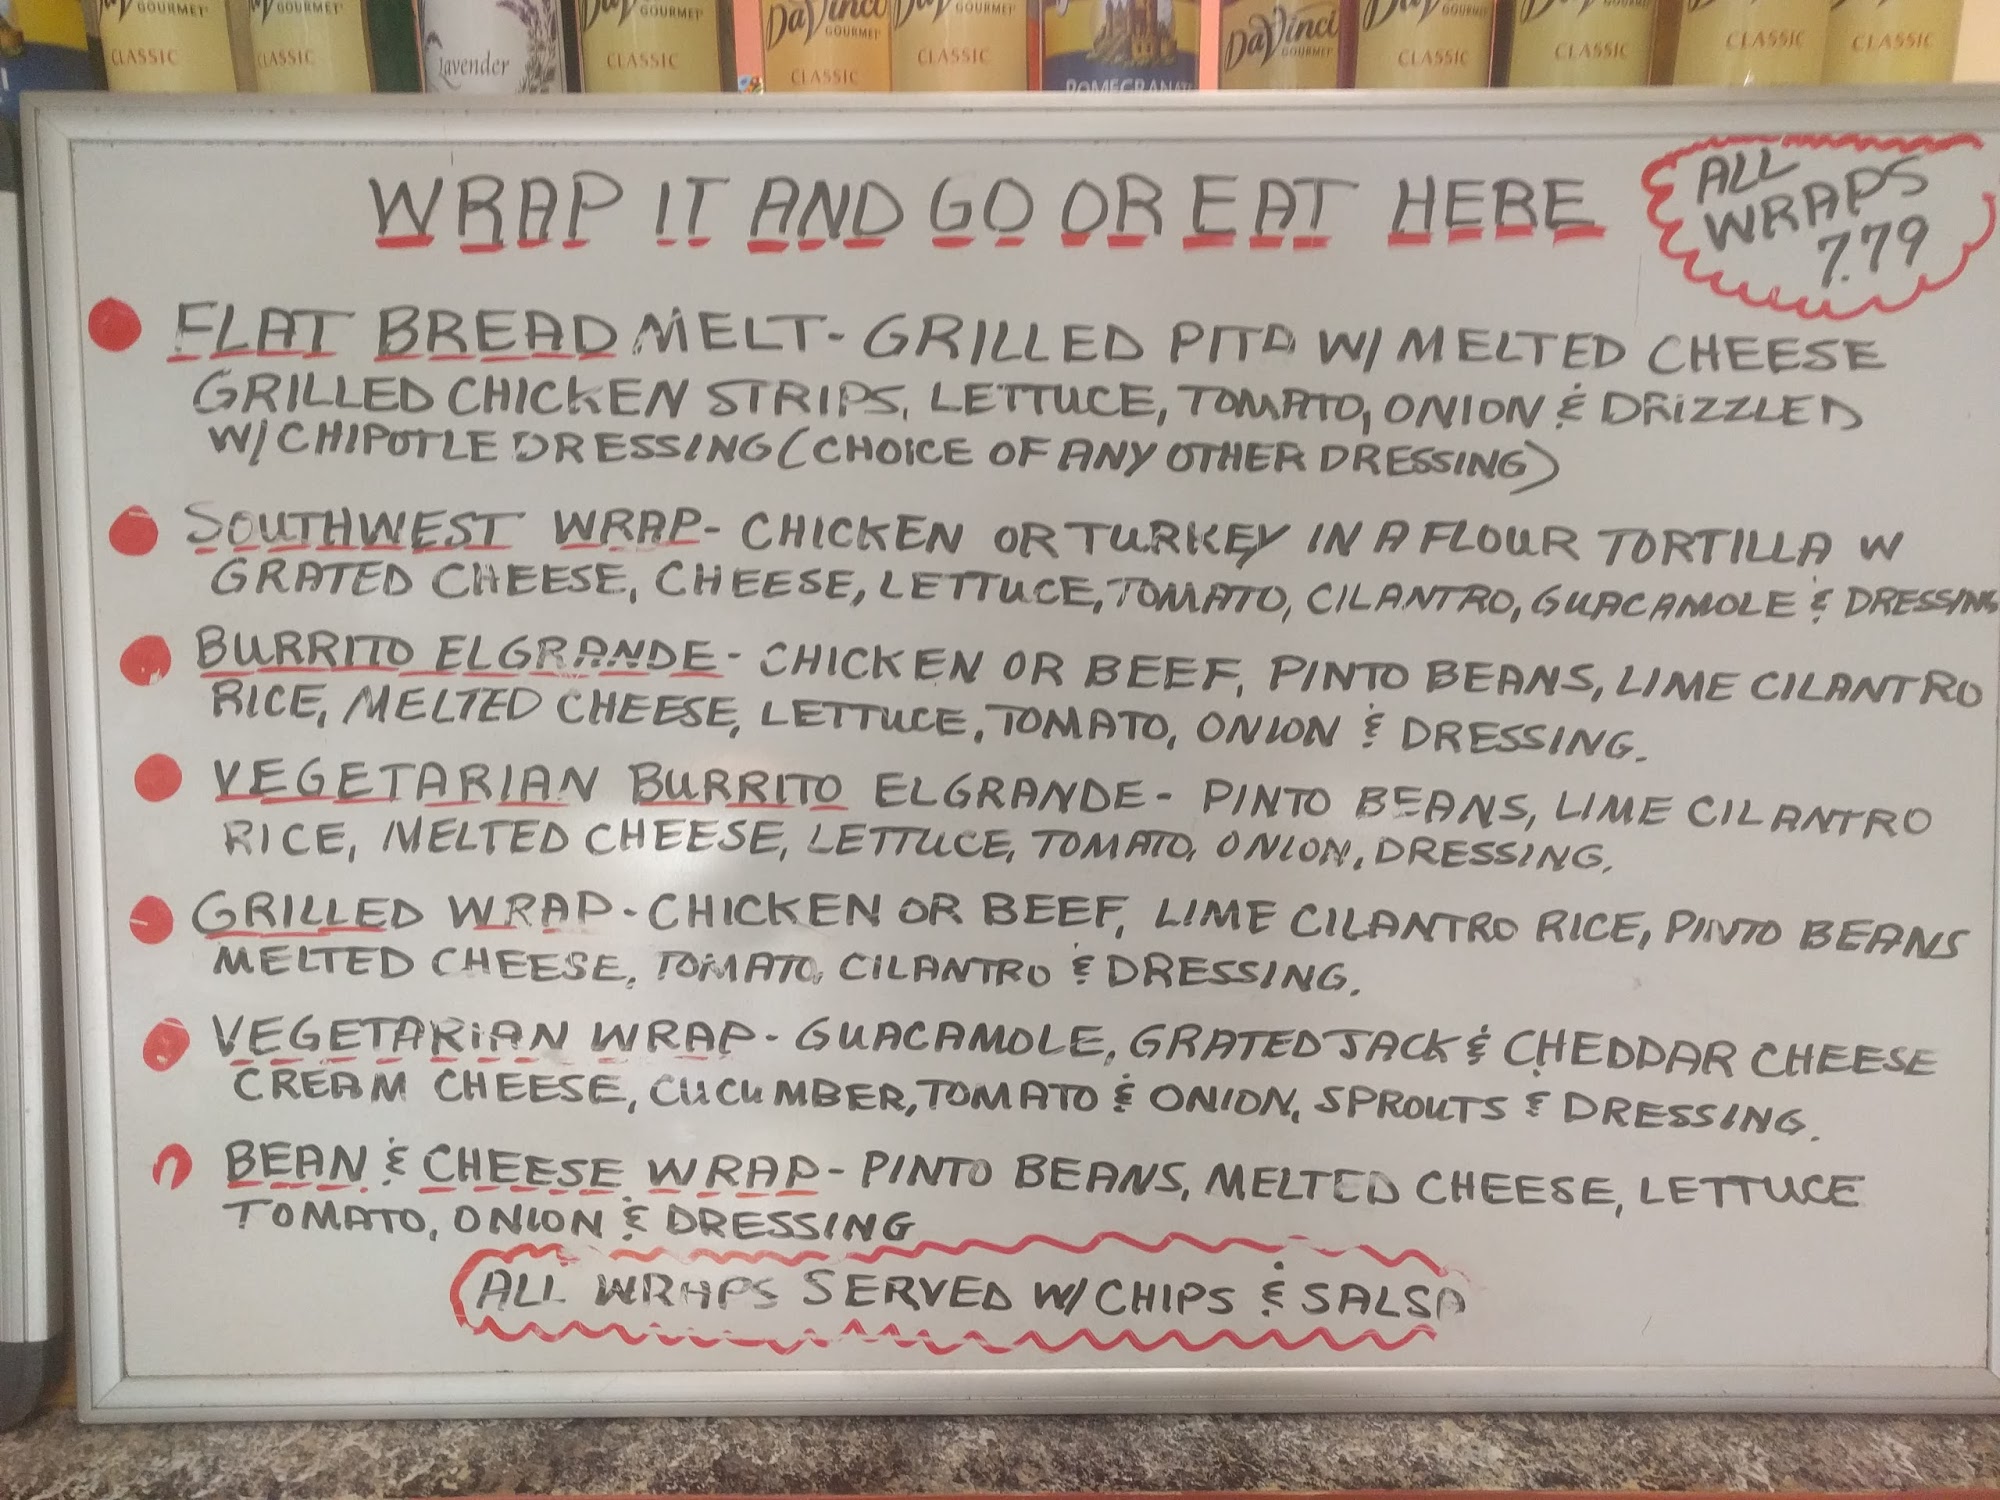 DaVinci GOURMET CLASSIC
GOURMET CLASSIC
lavender
GOURMET CLASSIC
DaVinci GOURMET CLASSIC
GOURMET CLASSIC
POMEGRANATE
DaVinci GOURMET
DaVinci GOURMET CLASSIC
GOURMET CLASSIC
CLASSIC
CLASSIC
WRAP IT AND GO OR EAT HERE
ALL
WRAPS
7.79
FLAT BREAD MELT - GRILLED PITA W/ MELTED CHEESE
GRILLED CHICKEN STRIPS, LETTUCE, TOMATO, ONION & DRIZZLED
W/ CHIPOTLE DRESSING (CHOICE OF ANY OTHER DRESSING)
SOUTHWEST WRAP - CHICKEN OR TURKEY IN A FLOUR TORTILLA W
GRATED CHEESE, CHEESE, LETTUCE, TOMATO, CILANTRO, GUACAMOLE & DRESSING
BURRITO ELGRANDE - CHICKEN OR BEEF, PINTO BEANS, LIME CILANTRO
RICE, MELTED CHEESE, LETTUCE, TOMATO, ONION & DRESSING.
VEGETARIAN BURRITO ELGRANDE - PINTO BEANS, LIME CILANTRO
RICE, MELTED CHEESE, LETTUCE, TOMATO, ONION, DRESSING.
GRILLED WRAP - CHICKEN OR BEEF, LIME CILANTRO RICE, PINTO BEANS
MELTED CHEESE, TOMATO, CILANTRO & DRESSING.
VEGETARIAN WRAP - GUACAMOLE, GRATED JACK & CHEDDAR CHEESE
CREAM CHEESE, CUCUMBER, TOMATO & ONION, SPROUTS & DRESSING.
BEAN & CHEESE WRAP - PINTO BEANS, MELTED CHEESE, LETTUCE
TOMATO, ONION & DRESSING
ALL WRAPS SERVED W/ CHIPS & SALSA